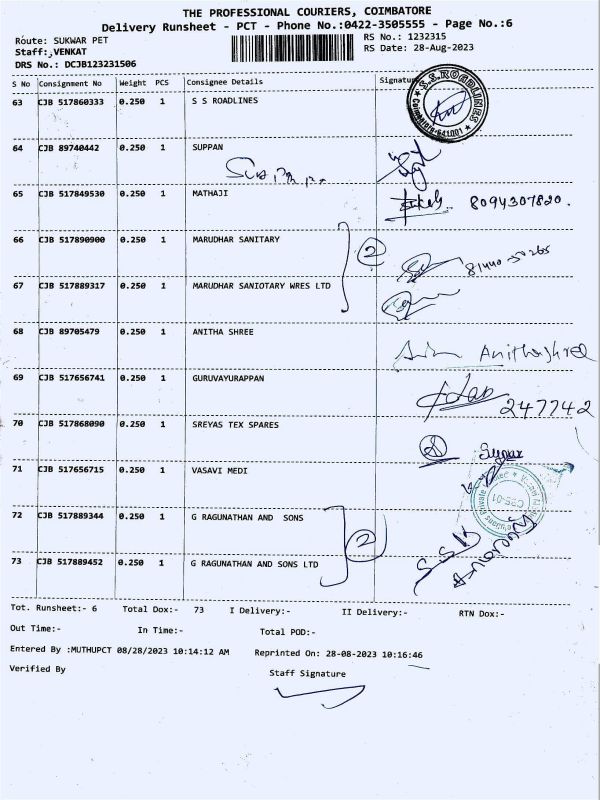 THE PROFESSIONAL COURIERS, COIMBATORE
Delivery Runsheet - PCT - Phone No.:0422-3505555 - Page No.:6
Route: SUKWAR PET
RS No.: 1232315
Staff:,VENKAT
RS Date: 28-Aug-2023
DRS No.: DCJB123231506
S No Consignment No Weight PCS Consignee Details Signature
63 CJB 517860333 0.250 1 S S ROADLINES
S.S.ROADLINES
Coimbatore-641001
64 CJB 89740442 0.250 1 SUPPAN
65 CJB 517849530 0.250 1 MATHAJI
8094307820.
66 CJB 517890900 0.250 1 MARUDHAR SANITARY
2
67 CJB 517889317 0.250 1 MARUDHAR SANIOTARY WRES LTD
68 CJB 89705479 0.250 1 ANITHA SHREE
Anithashree
69 CJB 517656741 0.250 1 GURUVAYURAPPAN
247742
70 CJB 517868090 0.250 1 SREYAS TEX SPARES
71 CJB 517656715 0.250 1 VASAVI MEDI
72 CJB 517889344 0.250 1 G RAGUNATHAN AND SONS
2
73 CJB 517889452 0.250 1 G RAGUNATHAN AND SONS LTD
Tot. Runsheet:- 6 Total Dox:- 73 I Delivery:- II Delivery:- RTN Dox:-
Out Time:- In Time:- Total POD:-
Entered By :MUTHUPCT 08/28/2023 10:14:12 AM Reprinted On: 28-08-2023 10:16:46
Verified By Staff Signature